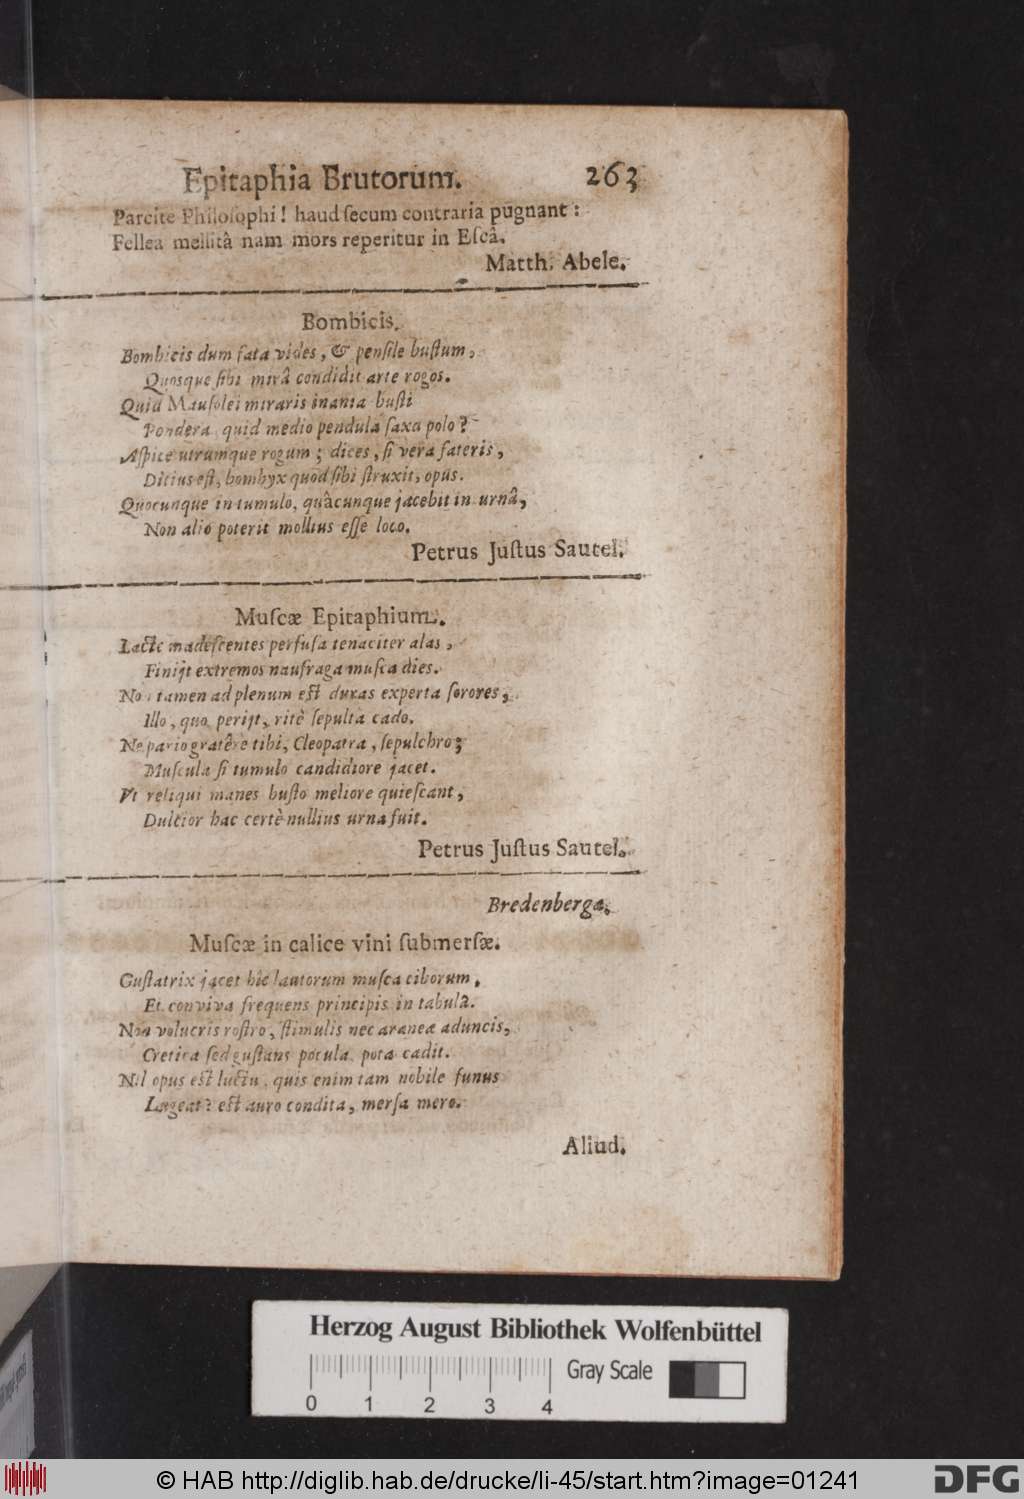 Epitaphia Brutorum. 263
Parcite Philosophi! haud ſecum contraria pugnant:
Fellea mellitâ nam mors reperitur in Eſcâ.
Matth. Abele.
Bombicis.
Bombicis dum fata vides, & penſile buſtum,
Quosque ſibi mirâ condidit arte rogos.
Quid Mauſolei miraris inania buſti
Pondera, quid medio pendula ſaxa polo?
Aſpice utrumque rogum; dices, ſi vera fateris,
Ditius eſt, bombyx quod ſibi ſtruxit, opus.
Quocunque in tumulo, quâcunque jacebit in urnâ,
Non alio poterit mollius eſſe loco.
Petrus Juſtus Sautel.
Muſcæ Epitaphium.
Lacte madeſcentes perfuſa tenaciter alas,
Finijt extremos naufraga muſca dies.
No tamen ad plenum eſt duras experta ſorores,
Illo, quo perijt, ritè ſepulta cado.
Ne pario gratêre tibi, Cleopatra, ſepulchro;
Muſcula ſi tumulo candidiore jacet.
Vt reliqui manes buſto meliore quieſcant,
Dulcior hac certè nullius urna fuit.
Petrus Juſtus Sautel.
Bredenberga.
Muſcæ in calice vini ſubmerſæ.
Guſtatrix jacet hîc lautorum muſca ciborum,
Et conviva frequens principis in tabulâ.
Non volucris roſtro, ſtimulis nec araneæ aduncis,
Cretica ſed guſtans pocula, pota cadit.
Nil opus eſt luctu, quis enim tam nobile funus
Lægeat? eſt auro condita, merſa mero.
Aliud.
Herzog August Bibliothek Wolfenbüttel
Gray Scale
0 1 2 3 4
© HAB http://diglib.hab.de/drucke/li-45/start.htm?image=01241
DFG